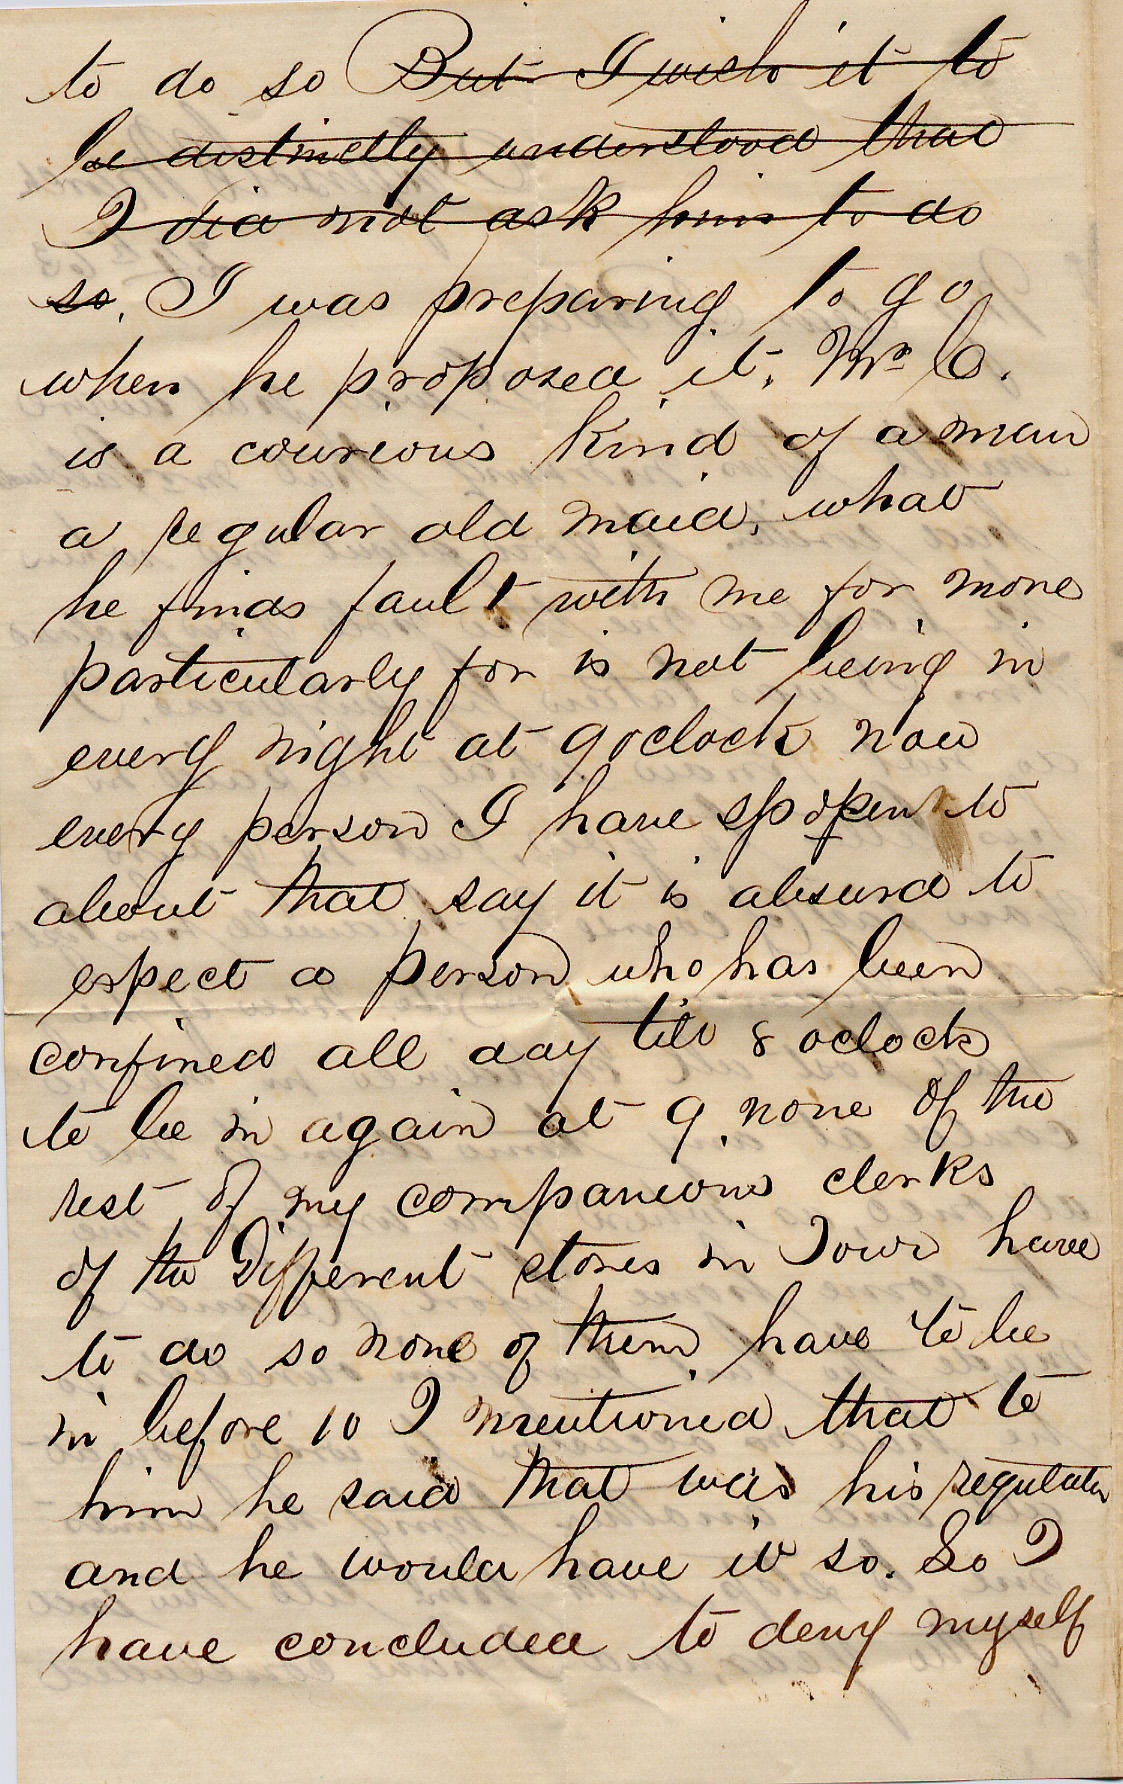 to do so But I wish it to
be distinctly understood that
I did not ask him to do
so. I was preparing to go
when he proposed it. Mr C.
is a courious kind of a man
a regular old maid, what
he finds fault with me for more
particularly for is not being in
every night at 9 oclock now
every person I have spoken to
about that say it is absurd to
expect a person who has been
confined all day till 8 oclock
to be in again at 9. none of the
rest of my companions clerks
of the Different stores in Town have
to do so none of them have to be
in before 10 I mentioned that to
him he said that was his regulation
and he would have it so. So I
have concluded to deny myself